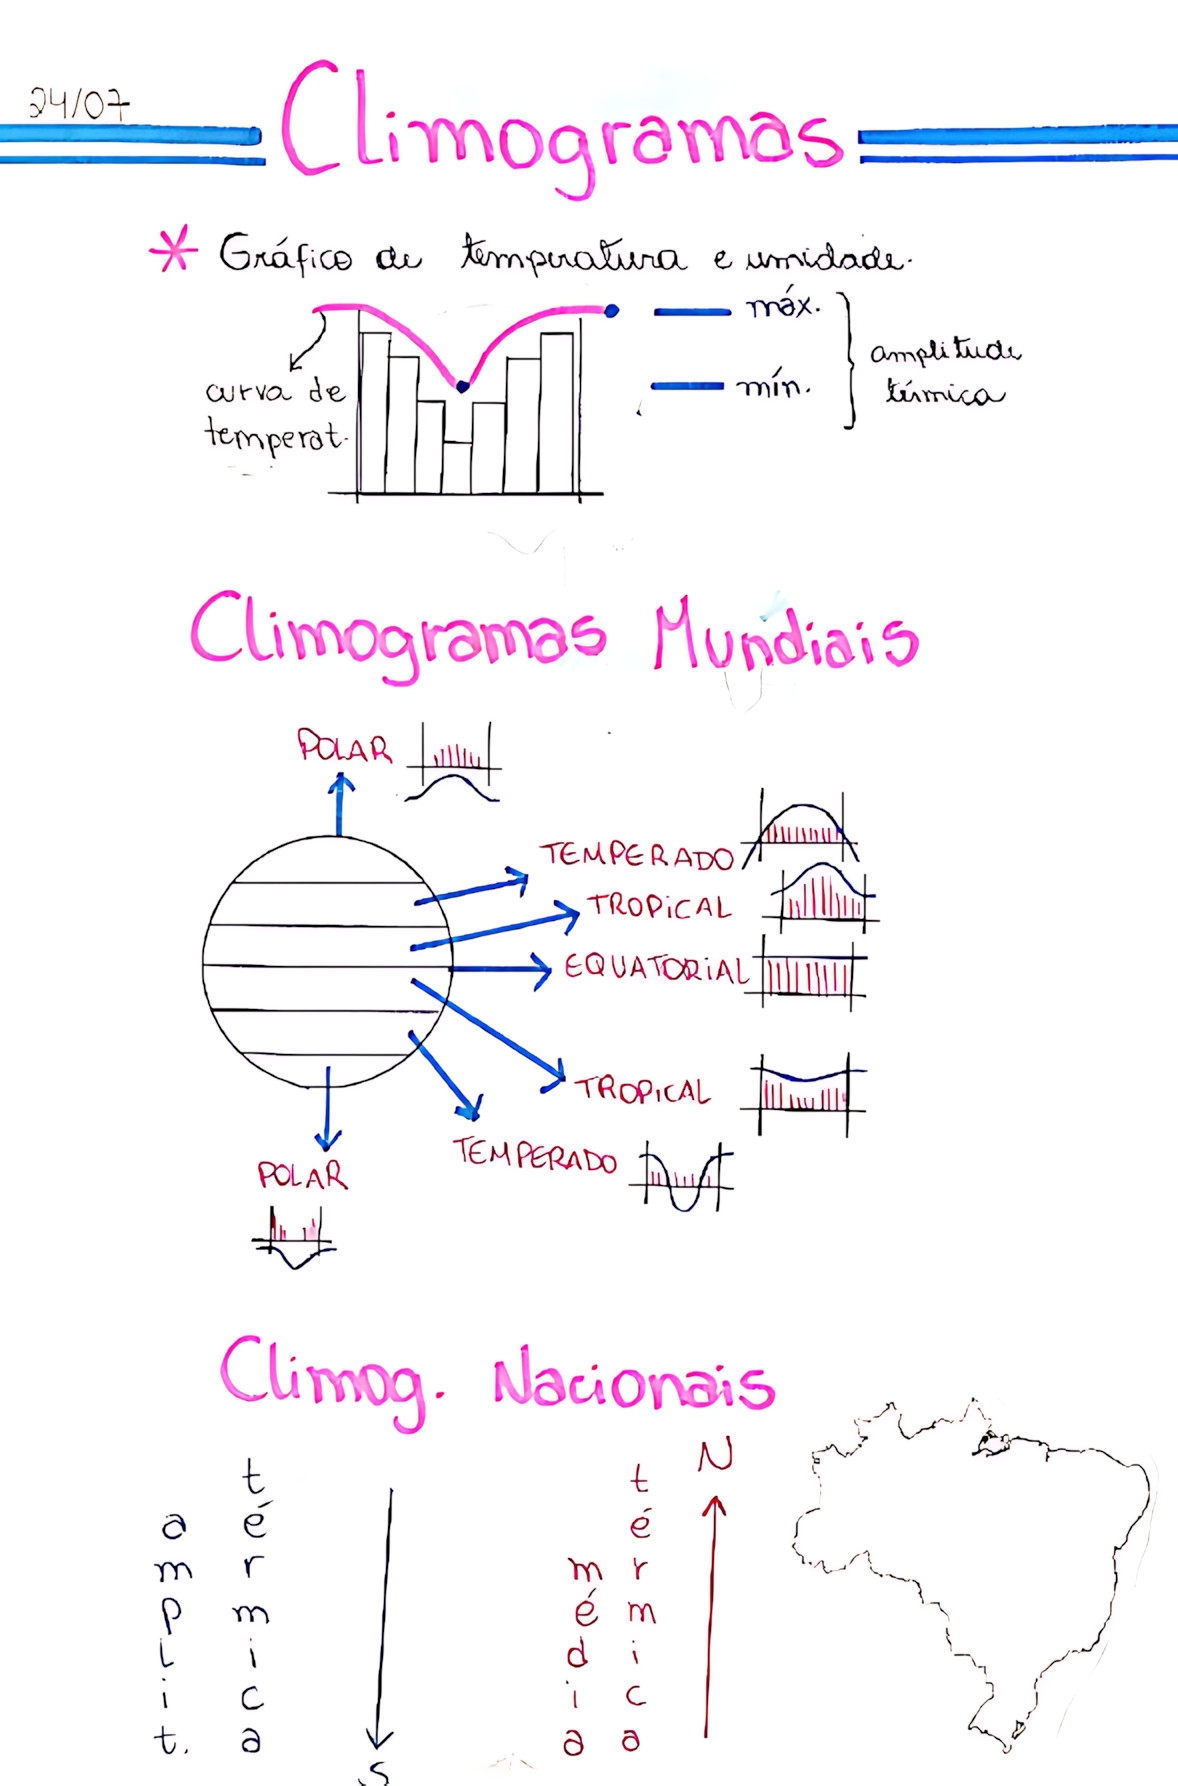 24/07
Climogramas
* Gráfico de temperatura e umidade.
máx.
mín.
amplitude
térmica
curva de
temperat.
Climogramas Mundiais
POLAR
TEMPERADO
TROPICAL
EQUATORIAL
TROPICAL
TEMPERADO
POLAR
Climog. Nacionais
amplit.
térmica
S
média
térmica
N